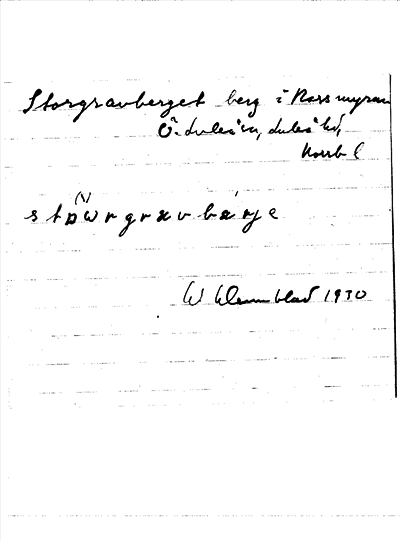 Storgravberget berg i Norsmyran
Ö. Luleå sn, Luleå td,
Norrb l
stɒ(v)wrgravbärje
W Klemmblad 1930